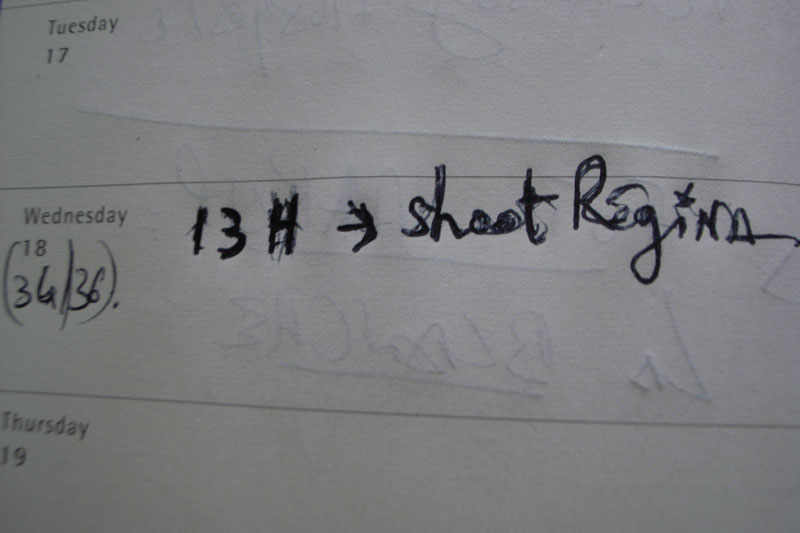 Tuesday
17
Wednesday
18
13 H → shoot RegiNA
(34/36).
Thursday
19